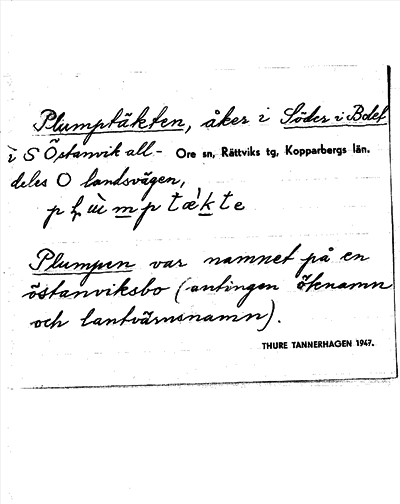 Plumptäkten, åker i Söder i Bdef
i S Östanvik all- Ore sn, Rättviks tg, Kopparbergs län.
deles O landsvägen,
Plumpen var namnet på en
östanviksbo (antingen öknamn
och lantvärnsnamn).
THURE TANNERHAGEN 1947.